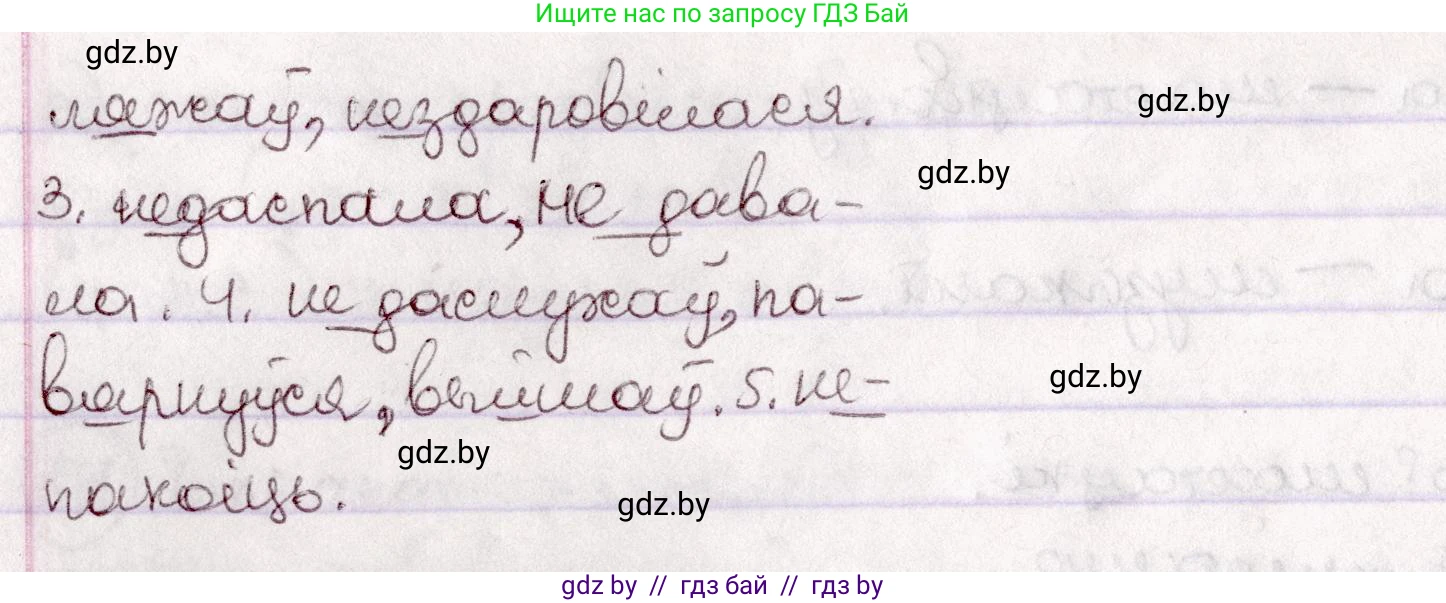 Ищите нас по запросу ГДЗ Бай
gdz.by
ляжаў, нездаровілася.
gdz.by
gdz.by
3. недаспала, не дава-
ла. 4. не даслужаў, па-
вярнуўся, выйшаў. 5. не-
gdz.by
gdz.by
пакоіць.
gdz.by
gdz.by // гдз бай // гдз by